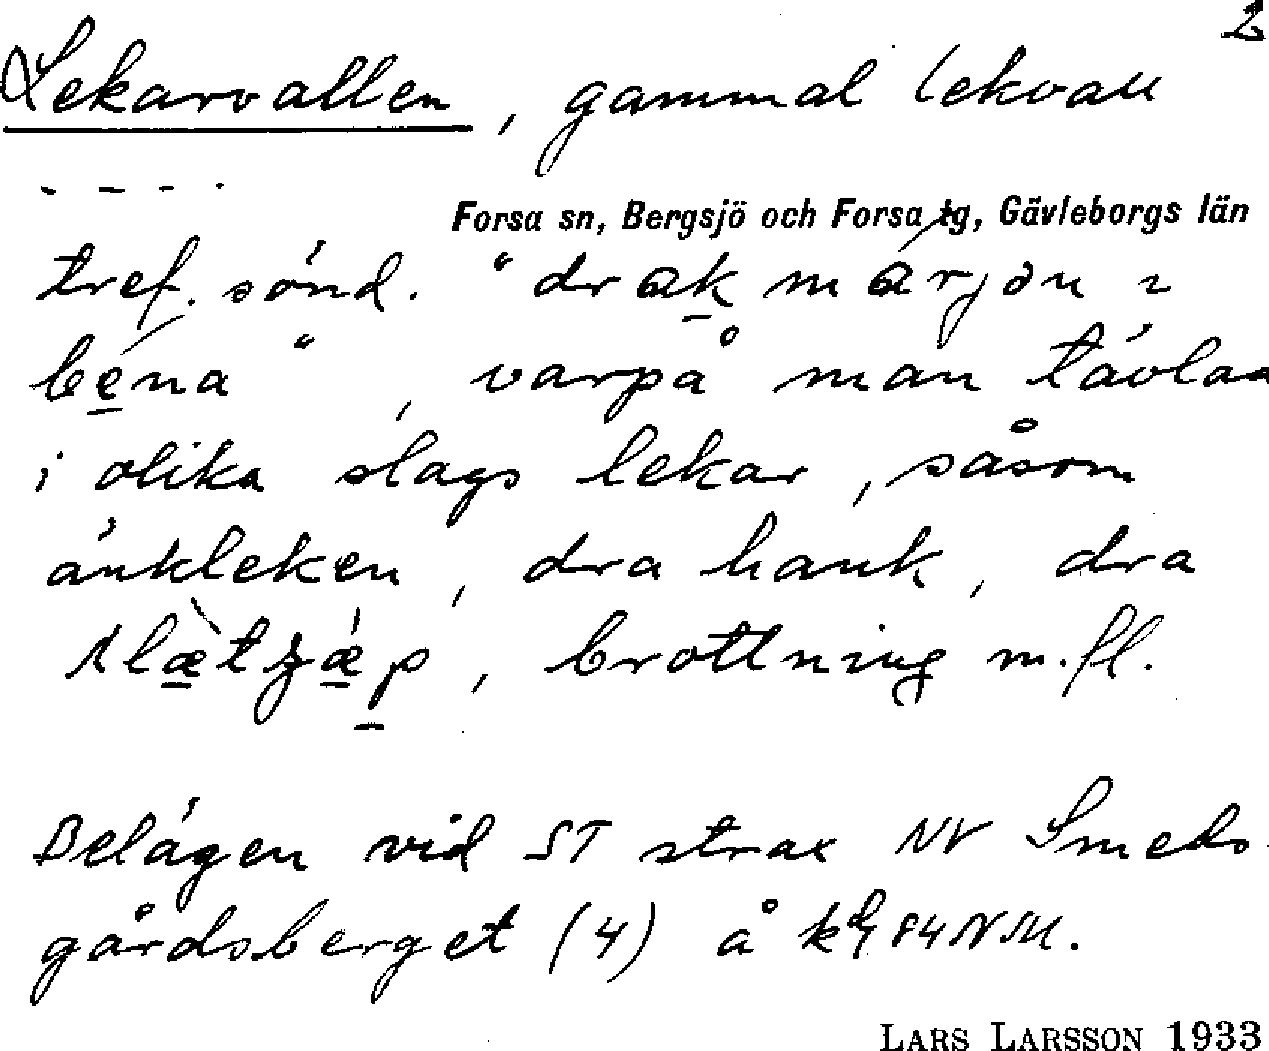 2
Lekarvallen, gammal lekvall
- - - -
Forsa sn, Bergsjö och Forsa tg, Gävleborgs län
tref. sönd. "drak márjən ı
béna", varpå man tävlar
i olika slags lekar, såsom
änkleken, dra hank, dra
brottning m. fl.
Belägen vid ST strax NV Smeds-
gårdsberget (4) å
LARS LARSSON 1933